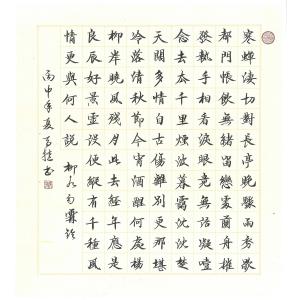 寒蟬淒切對長亭晚驟雨初歇
都門帳飲無緒留戀處蘭舟催
發執手相看淚眼竟無語凝噎
念去去千里煙波暮靄沈沈楚
天闊多情自古傷離別更那堪
冷落清秋節今宵酒醒何處楊
柳岸曉風殘月此去經年應是
良辰好景虛設便縱有千種風
情更與何人說 柳永雨霖鈴
丙申年夏